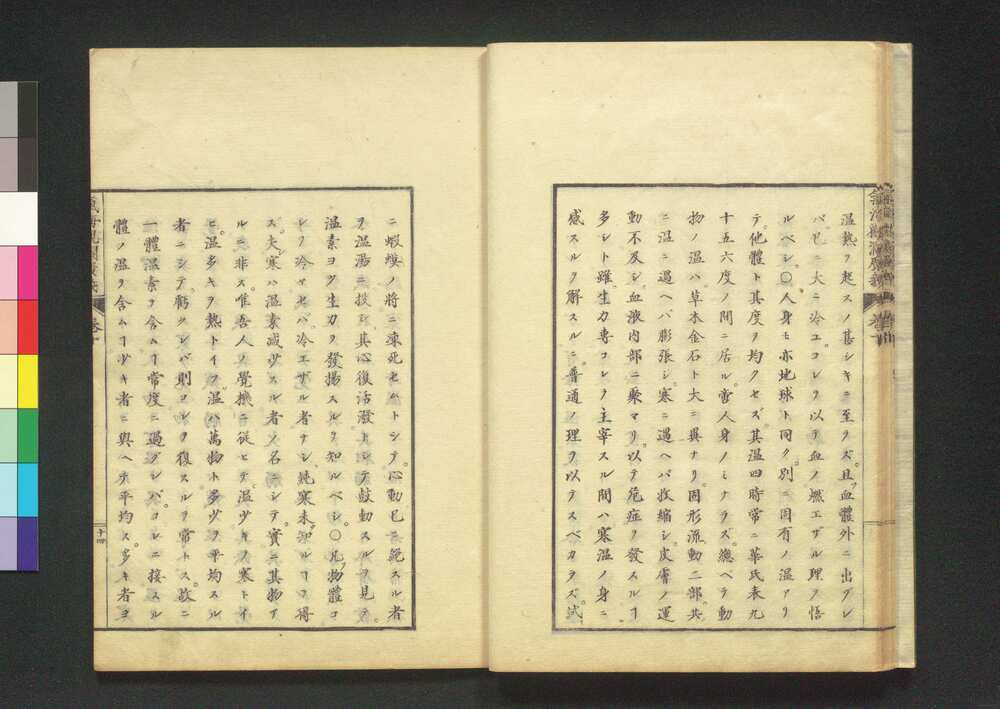 温熱ヲ起スノ甚シキニ至ラズ。且ツ血體外ニ出グレ
バ。已ニ大ニ冷エ。コレヲ以テ血ノ燃エザル理ヲ悟
ルベシ。〇人身モ亦地球ト同ク。別ニ固有ノ温アリ
テ。他體ト其度ヲ均クセズ。其温四時常ニ華氏表九
十五六度ノ間ニ居ル。啻人身ノミナラズ。總ベテ動
物ノ温ハ草木金石ト大ニ異ナリ。固形流動二部。共
ニ温ニ遇ヘバ膨張シ。寒ニ遇ヘバ收縮シ。皮膚ノ運
動不及シ。血液内部ニ聚マリ。以テ危症ヲ發スルヿ
多シト雖。生力專コレヲ主宰スル間ハ寒温ノ身ニ
感スルヲ解スルニ。普通ノ理ヲ以テスベカラズ。試
ニ蝦蟆ノ將ニ凍死セムトシテ。心動已ニ絶スル者
ヲ温湯ニ投
其心復活潑トシテ鼓動スルヲ見テ。
温素ヨク生力ヲ發揚スルヲ知ルベシ。〇凡物體コ
レヲ冷マセバ冷エザル者ナシ。純寒未知ルヿヲ得
ズ。夫寒ハ温素減少スル者ノ名ニシテ。實ニ其物ア
ルニ非ス。唯吾人ノ覺
ニ從ヒテ。温少キヲ寒トイ
ヒ。温多キヲ熱トイフ。温ハ萬物ト多少ヲ平均スル
者ニシテ。虧クレバ則コレヲ復スルヲ常トス。故ニ
一體温素ヲ含ムヿ常度ニ過グレバ。コレニ接スル
體ノ温ヲ含ムヿ少キ者ニ與ヘテ平均ス。多キ者ヨ
十四